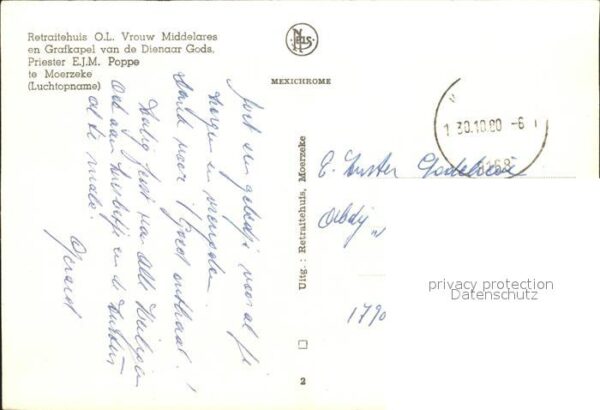 Retraitehuis O.L. Vrouw Middelares
en Grafkapel van de Dienaar Gods,
Priester E.J.M. Poppe
te Moerzeke
(Luchtopname)
NELS
MEXICHROME
Juist een gebedje voor al je
zorgen en
Dank voor 't goed onthaal!
Zalig feest van Alle Heiligen
Ook aan en de Zusters
al te male.
Gerard
Uitg.: Retraitehuis, Moerzeke
2
30.10.80 -6
E. Zuster Godelieve
Abdij
1790
privacy protection
Datenschutz